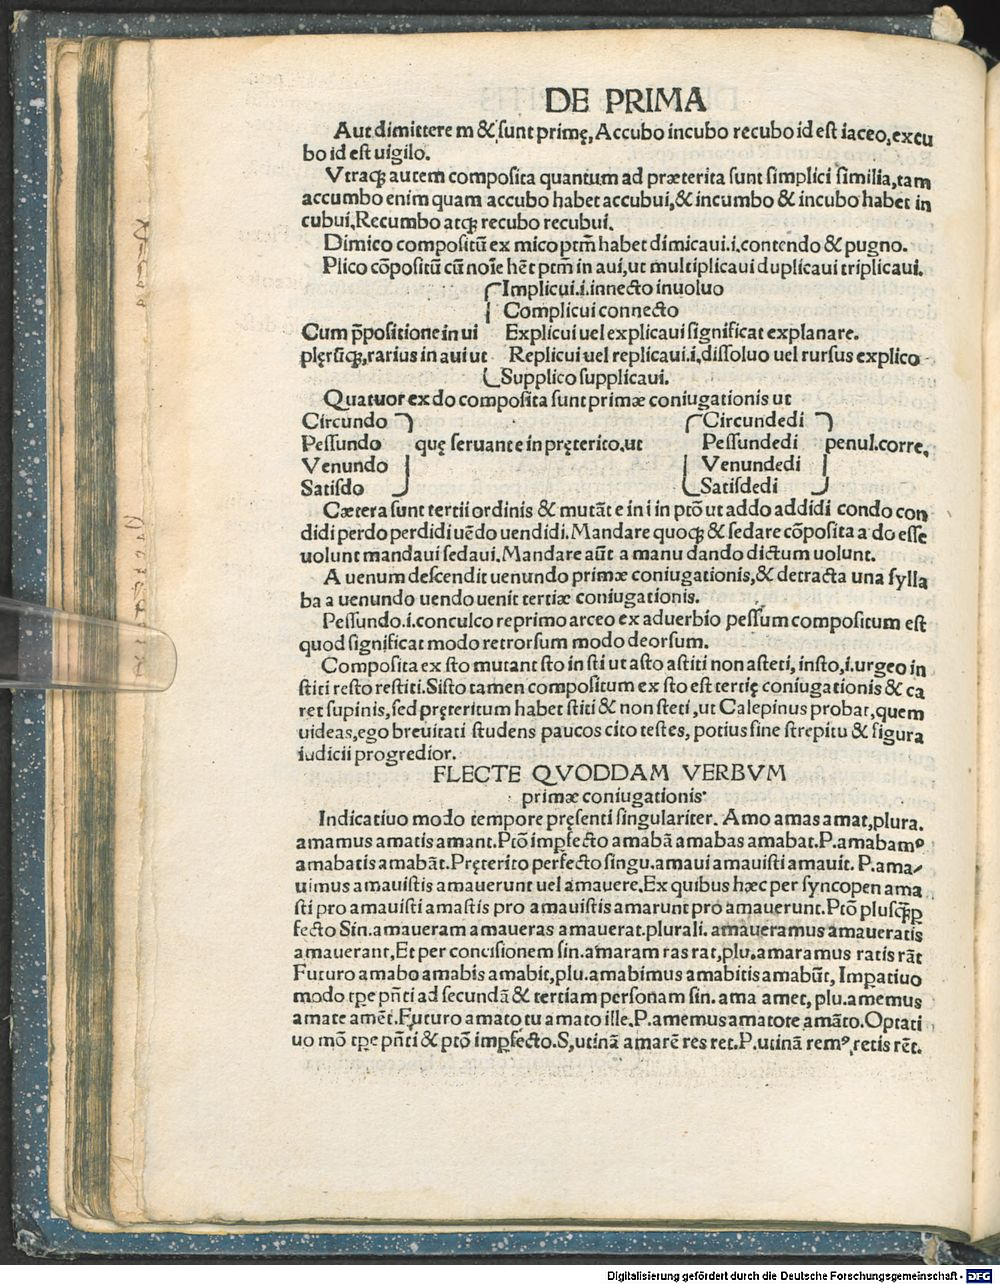 DE PRIMA
Aut dimittere m & ſunt primę, Accubo incubo recubo id eſt iaceo, excu
bo id eſt uigilo.
Vtraqꝫ autem compoſita quantum ad præterita ſunt ſimplici ſimilia, tam
accumbo enim quam accubo habet accubui, & incumbo & incubo habet in
cubui. Recumbo atqꝫ recubo recubui.
Dimico compoſitū ex mico ptm̄ habet dimicaui.i.contendo & pugno.
Plico cōpoſitū cū noīe hēt ptm̄ in aui, ut multiplicaui duplicaui triplicaui.
Implicui.i.innecto inuoluo
Complicui connecto
Cum p̄poſitione in ui Explicui uel explicaui ſignificat explanare.
plęrūqꝫ, rarius in aui ut Replicui uel replicaui.i.diſſoluo uel rurſus explico
Supplico ſupplicaui.
Quatuor ex do compoſita ſunt primæ coniugationis ut
Circundo Circundedi
Peſſundo quę ſeruant e in pręterito.ut Peſſundedi penul.corre.
Venundo Venundedi
Satiſdo Satiſdedi
Cætera ſunt tertii ordinis & mutāt e in i in ptō ut addo addidi condo con
didi perdo perdidi uēdo uendidi. Mandare quoqꝫ & ſedare cōpoſita a do eſſe
uolunt mandaui ſedaui. Mandare aūt a manu dando dictum uolunt.
A uenum deſcendit uenundo primæ coniugationis, & detracta una ſylla
ba a uenundo uendo uenit tertiæ coniugationis.
Peſſundo.i.conculco reprimo arceo ex aduerbio peſſum compoſitum eſt
quod ſignificat modo retrorſum modo deorſum.
Compoſita ex ſto mutant ſto in ſti ut aſto aſtiti non aſteti, inſto, i.urgeo in
ſtiti reſto reſtiti. Siſto tamen compoſitum ex ſto eſt tertię coniugationis & ca
ret ſupinis, ſed pręteritum habet ſtiti & non ſteti, ut Calepinus probat, quem
uideas, ego breuitati ſtudens paucos cito teſtes, potius ſine ſtrepitu & figura
iudicii progredior.
FLECTE QVODDAM VERBVM
primæ coniugationis
Indicatiuo modo tempore pręſenti ſingulariter. Amo amas amat, plura.
amamus amatis amant. Ptō imꝑfecto amabā amabas amabat. P. amabamꝰ
amabatis amabāt. Pręterito perfecto ſingu. amaui amauiſti amauit. P. ama
uimus amauiſtis amauerunt uel amauere. Ex quibus hæc per ſyncopen ama
ſti pro amauiſti amaſtis pro amauiſtis amarunt pro amauerunt. Ptō pluſqꝫꝑ
fecto Sin. amaueram amaueras amauerat. plurali. amaueramus amaueratis
amauerant, Et per conciſionem ſin. amaram ras rat, plu. amaramus ratis rāt
Futuro amabo amabis amabit, plu. amabimus amabitis amabūt, Imꝑatiuo
modo tꝑe pn̄ti ad ſecundā & tertiam perſonam ſin. ama amet, plu. amemus
amate amēt. Futuro amato tu amato ille. P. amemus amatote amāto. Optati
uo mō tꝑe pn̄ti & ptō imꝑfecto. S, utinā amarē res ret. P. utinā remꝰ, retis rēt.
Digitalisierung gefördert durch die Deutsche Forschungsgemeinschaft - DFG